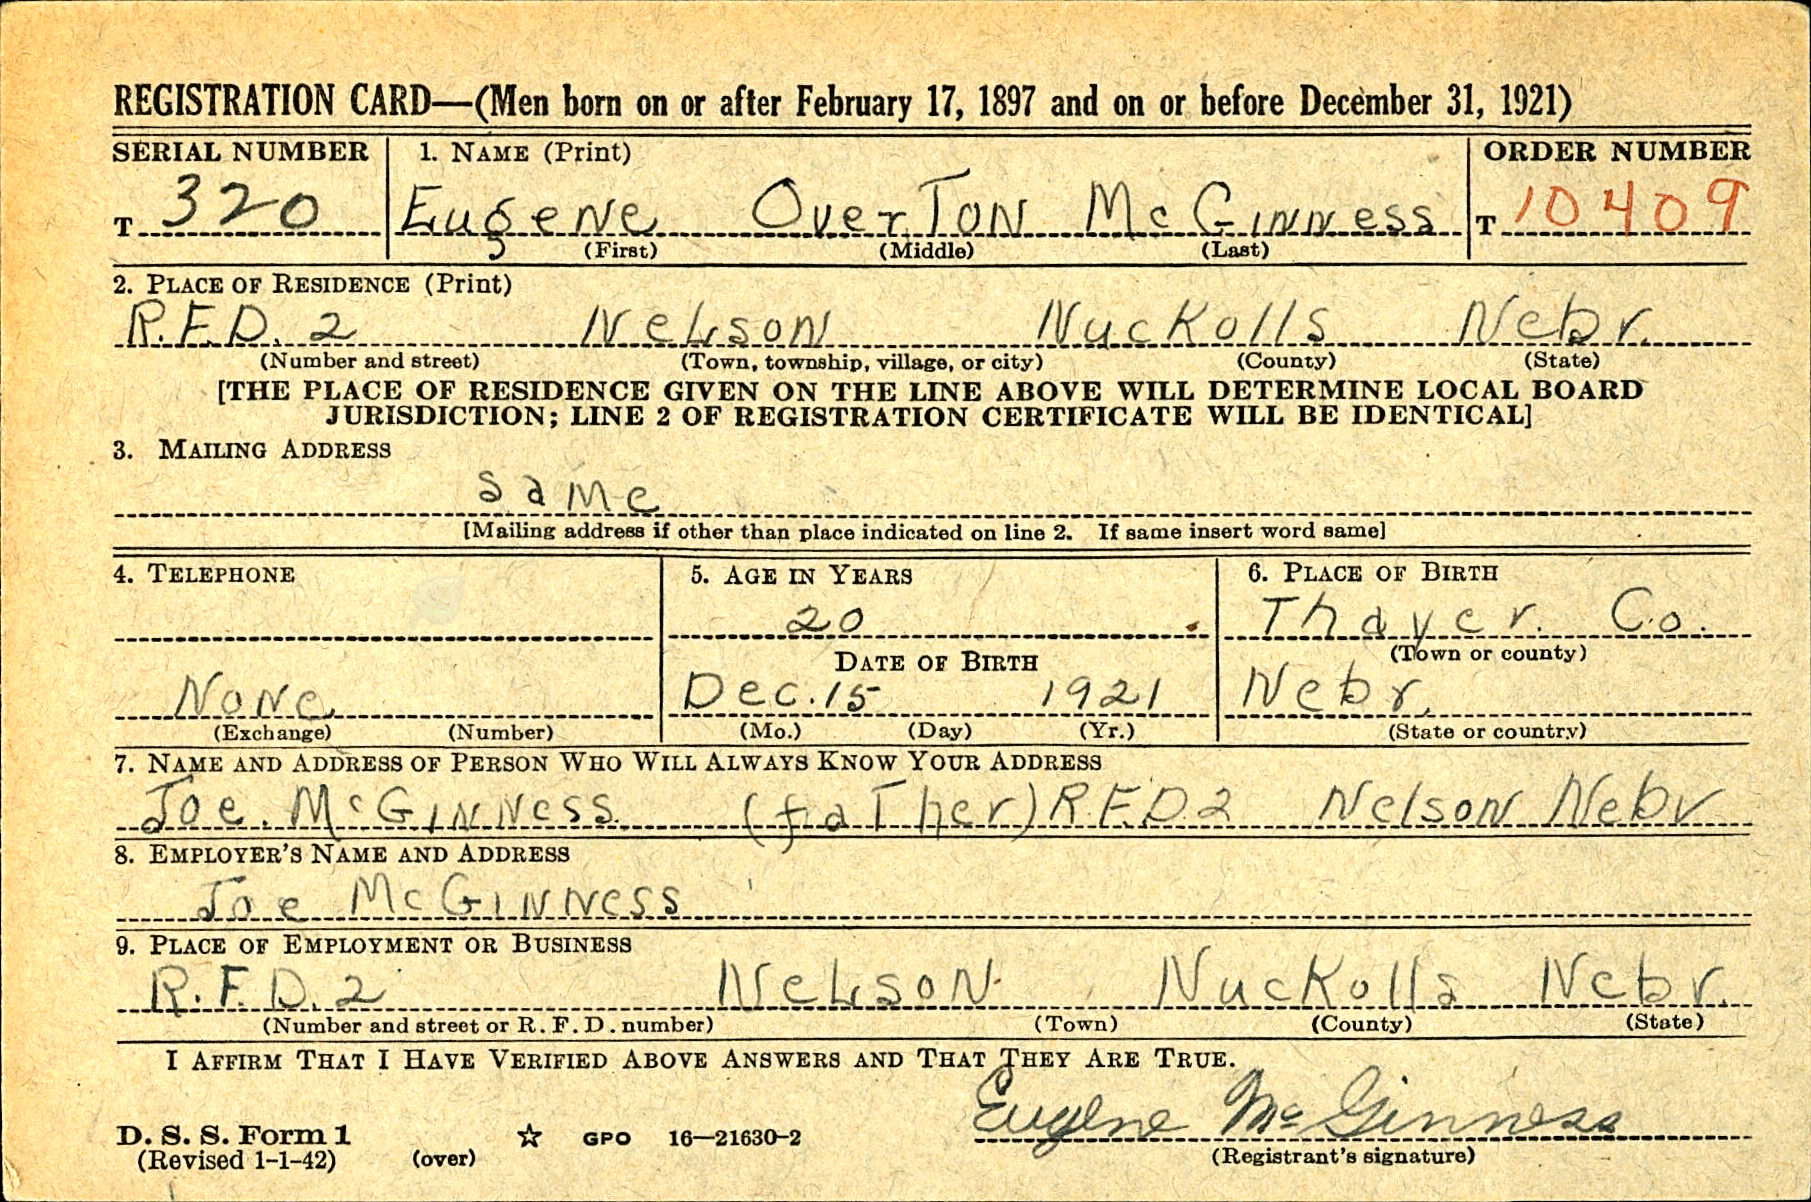 REGISTRATION CARD—(Men born on or after February 17, 1897 and on or before December 31, 1921)
SERIAL NUMBER 1. NAME (Print) ORDER NUMBER
T 320 Eugene Overton McGinness T 10409
(First) (Middle) (Last)
2. PLACE OF RESIDENCE (Print)
R.F.D. 2 Nelson Nuckolls Nebr.
(Number and street) (Town, township, village, or city) (County) (State)
[THE PLACE OF RESIDENCE GIVEN ON THE LINE ABOVE WILL DETERMINE LOCAL BOARD
JURISDICTION; LINE 2 OF REGISTRATION CERTIFICATE WILL BE IDENTICAL]
3. MAILING ADDRESS
same
[Mailing address if other than place indicated on line 2. If same insert word same]
4. TELEPHONE 5. AGE IN YEARS 6. PLACE OF BIRTH
20 Thayer. Co.
DATE OF BIRTH (Town or county)
None Dec. 15 1921 Nebr.
(Exchange) (Number) (Mo.) (Day) (Yr.) (State or country)
7. NAME AND ADDRESS OF PERSON WHO WILL ALWAYS KNOW YOUR ADDRESS
Joe. McGinness (father) R.F.D. 2 Nelson Nebr
8. EMPLOYER'S NAME AND ADDRESS
Joe McGinness
9. PLACE OF EMPLOYMENT OR BUSINESS
R.F.D. 2 Nelson Nuckolls Nebr.
(Number and street or R. F. D. number) (Town) (County) (State)
I AFFIRM THAT I HAVE VERIFIED ABOVE ANSWERS AND THAT THEY ARE TRUE.
Eugene McGinness
D. S. S. Form 1 ☆ GPO 16—21630-2
(Revised 1-1-42) (over) (Registrant's signature)